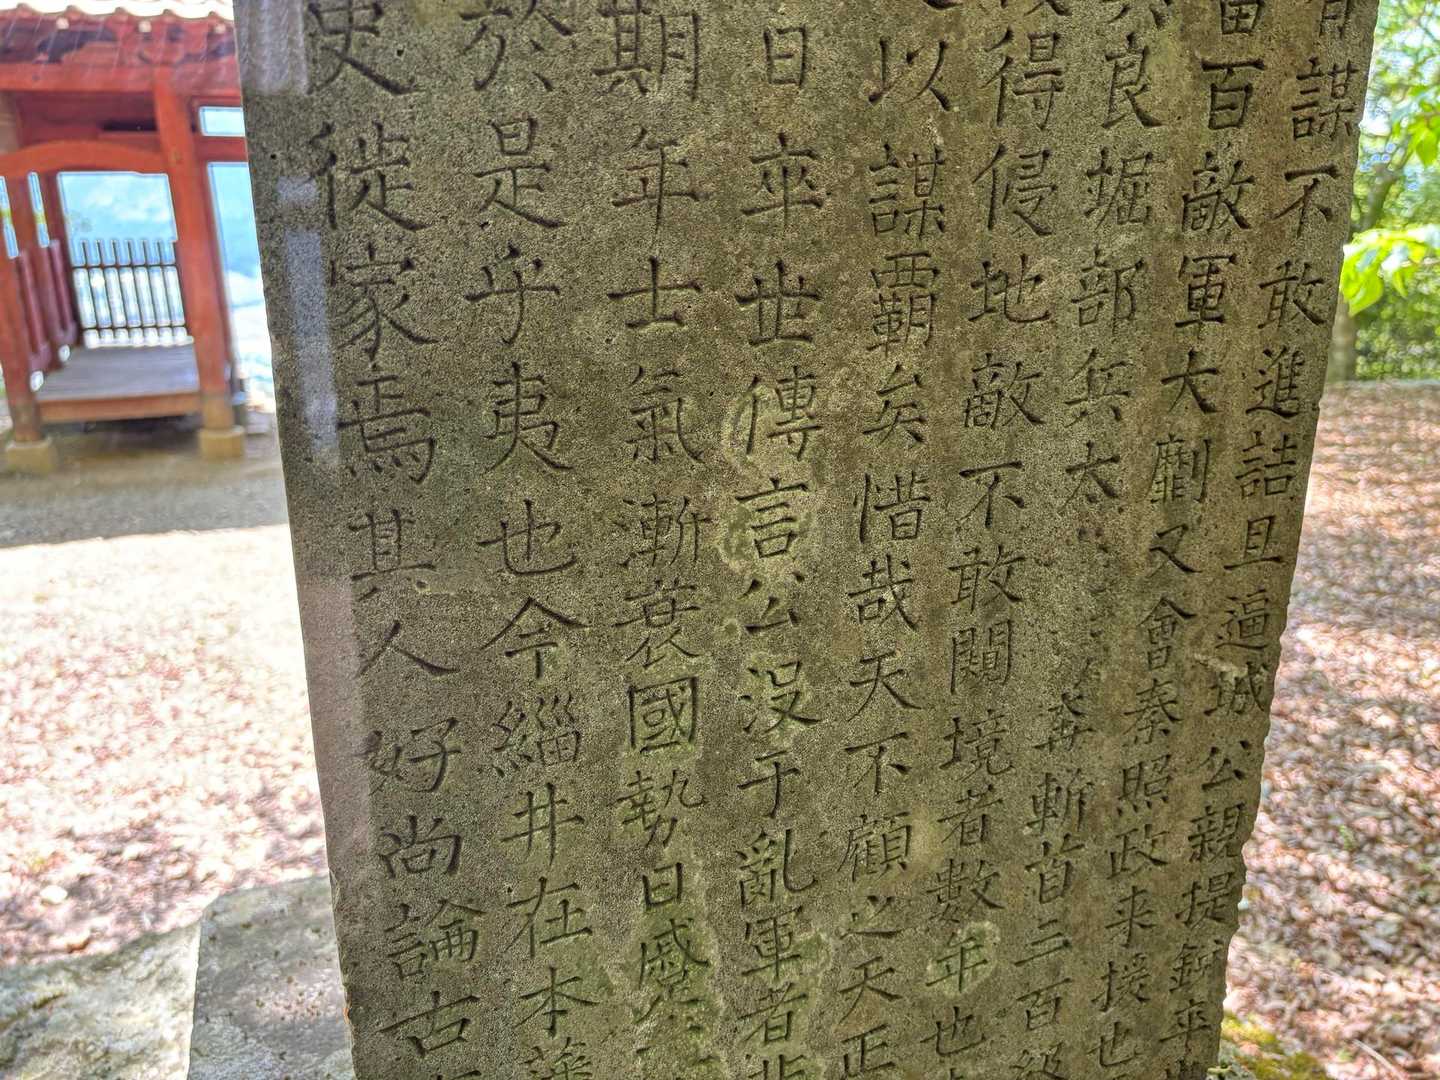 謀不敢進詰旦逼城公親提鋭卒
百敵軍大劘又會秦照政来援也
良堀部兵太斬首三百級
得侵地敵不敢闚境者數年也
以謀覇矣惜哉天不顧之天正
日卒世傳言公没于亂軍者非
期年士氣漸衰國勢日蹙
於是乎夷也今緇井在本藩
吏徙家焉其人好尚論古